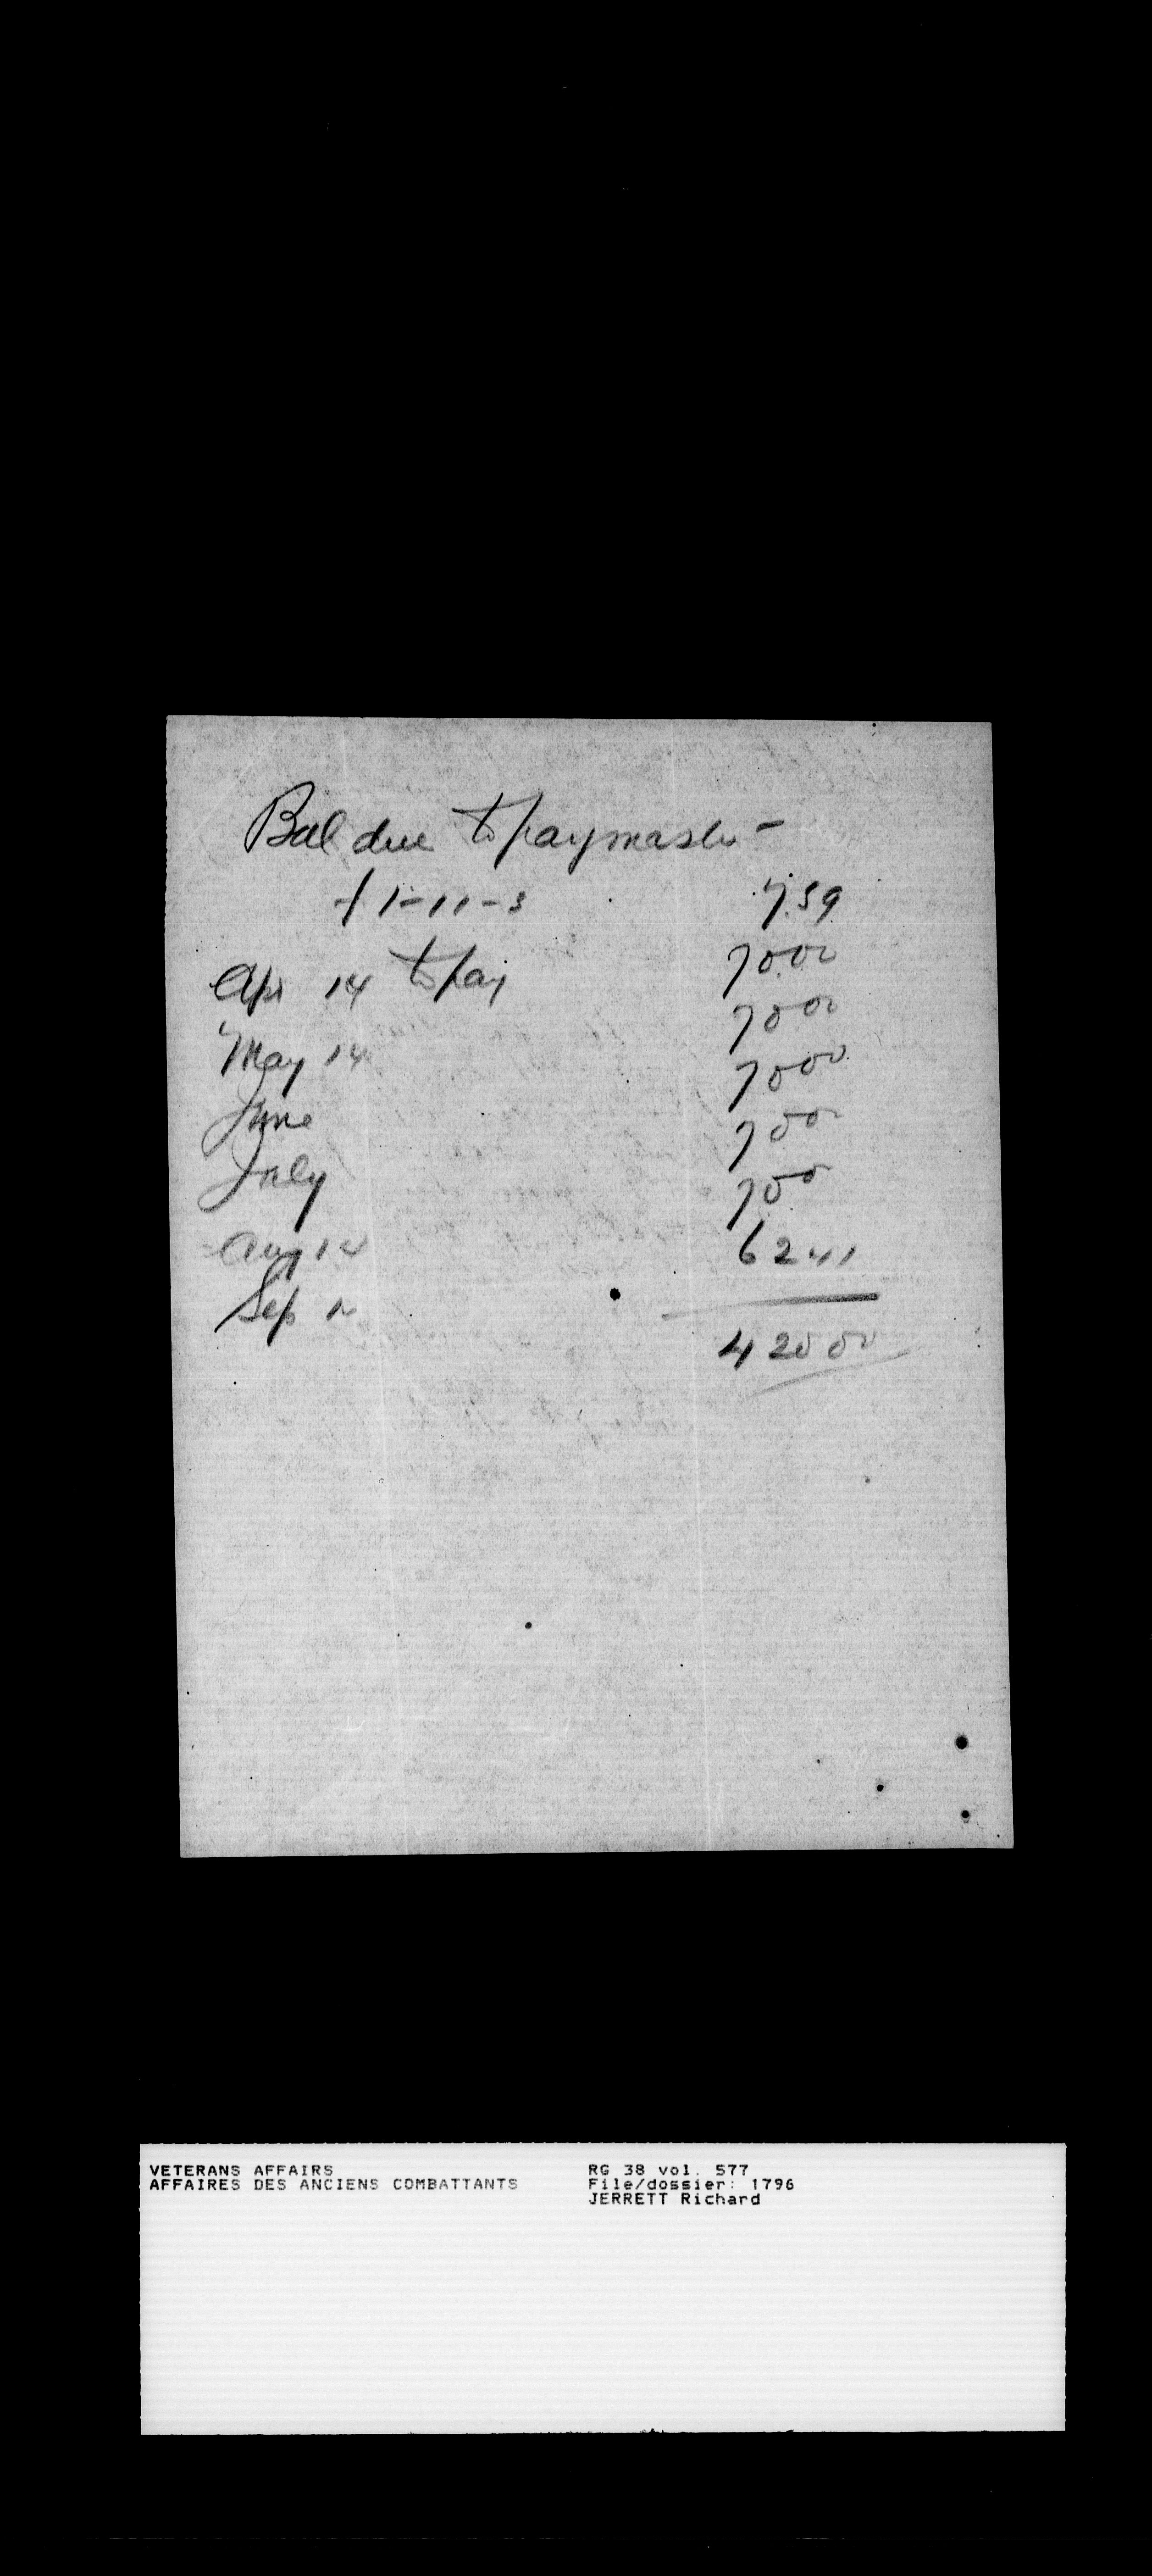 Bal due to paymaster -
£1-11-3 7.59
Apr 14 to pay 70.00
May 14 70 00
June 70 00
July 70 0
Aug 14 70 0
Sep 12 62 41
420 00
VETERANS AFFAIRS
AFFAIRES DES ANCIENS COMBATTANTS
RG 38 vol. 577
File/dossier: 1796
JERRETT Richard